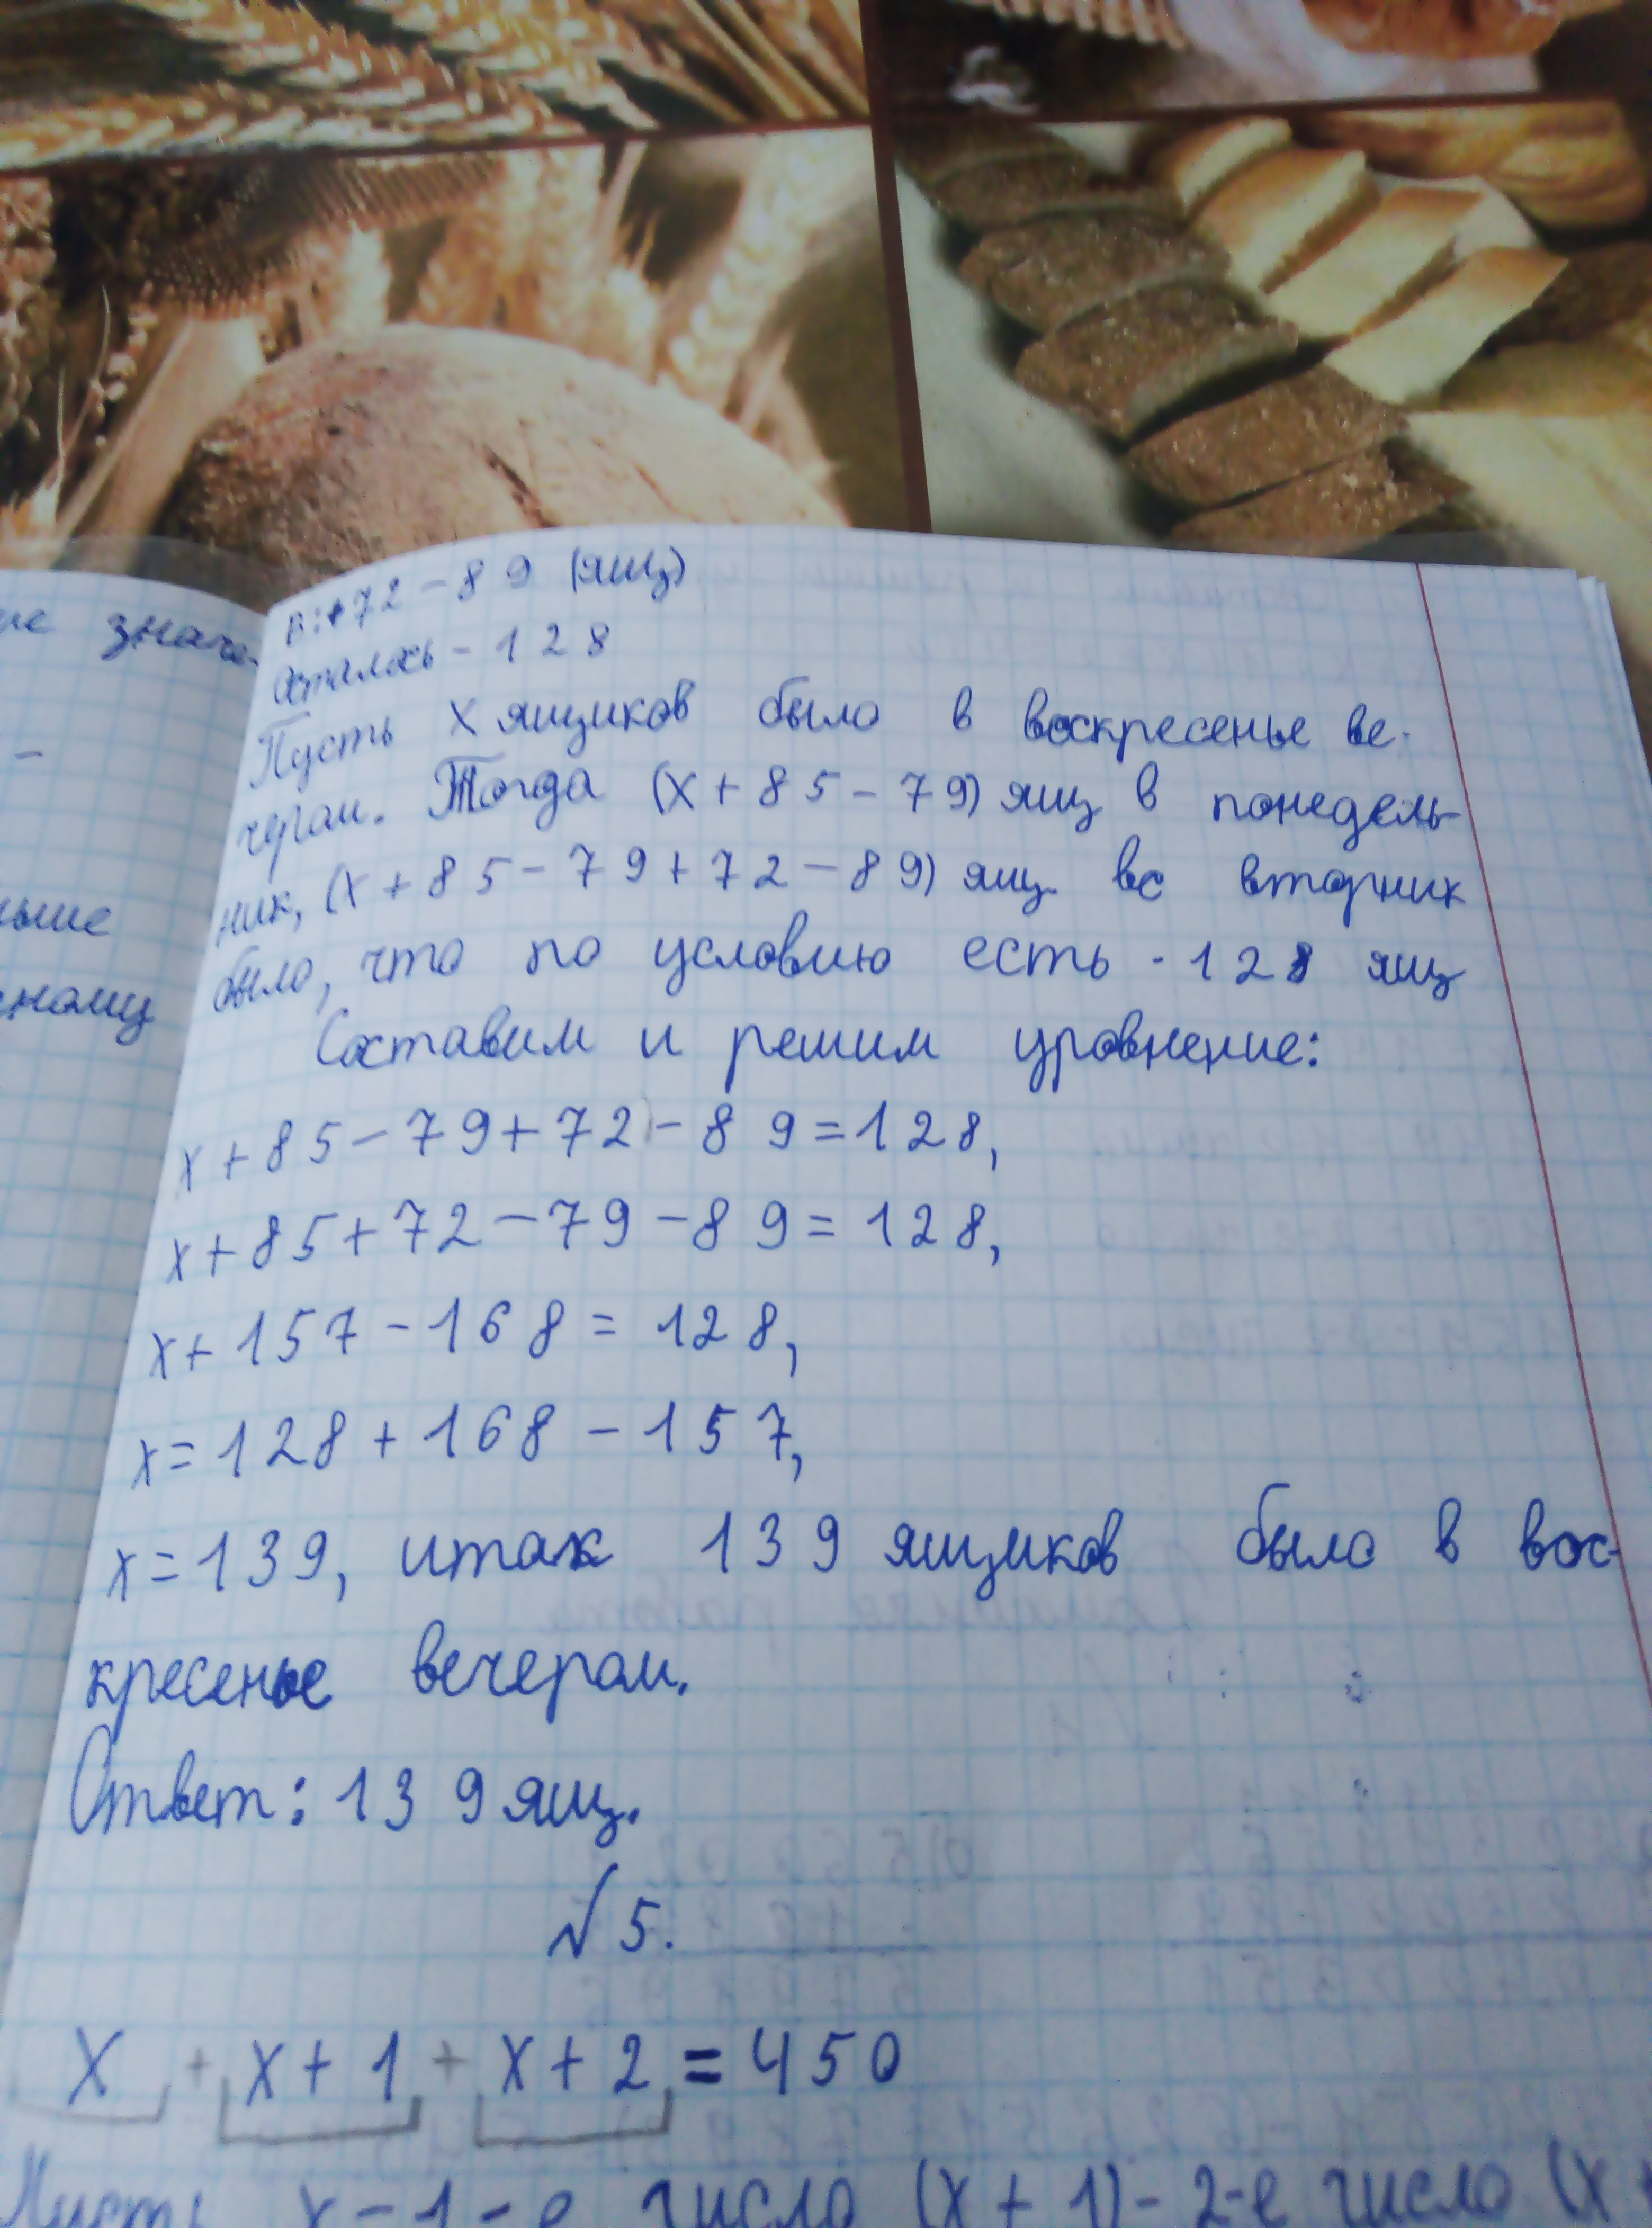 ие значе-
ньше
ному
В: +72-89 (ящ)
Осталось - 128
Пусть х ящиков было в воскресенье ве-
чером. Тогда (х+85-79) ящ в понедель-
ник, (х+85-79+72-89) ящ. во вторник
было, что по условию есть - 128 ящ
Составим и решим уровнение:
х+85-79+72-89=128,
х+85+72-79-89=128,
х+157-168=128,
х=128+168-157,
х=139, итак 139 ящиков было в вос-
кресенье вечером.
Ответ: 139 ящ.
№5.
х + х+1 + х+2 = 450
Пусть х-1-е число (х+1)-2-е число (х+